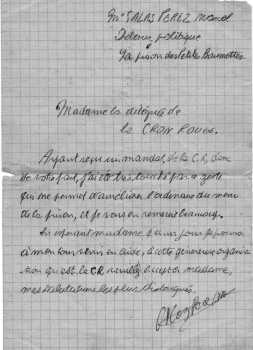 Mr SALAS PEREZ Manel
Détenu politique
à la prison des Petites Baumettes
Madame la déléguée de
la CROIX ROUGE.
Ayant reçu un mandat, de la C.R, don
de votre part, j'ai été très touché par ce geste
qui me permet d'améliorer l'ordinaire du menu
de la prison, et je vous en remercie beaucoup.
En espérant madame, qu'un jour je pourrai
à mon tour venir en aide, à cette généreuse organisa
tion qu'est la CR veuillez accepter madame,
mes salutations les plus distinguées.